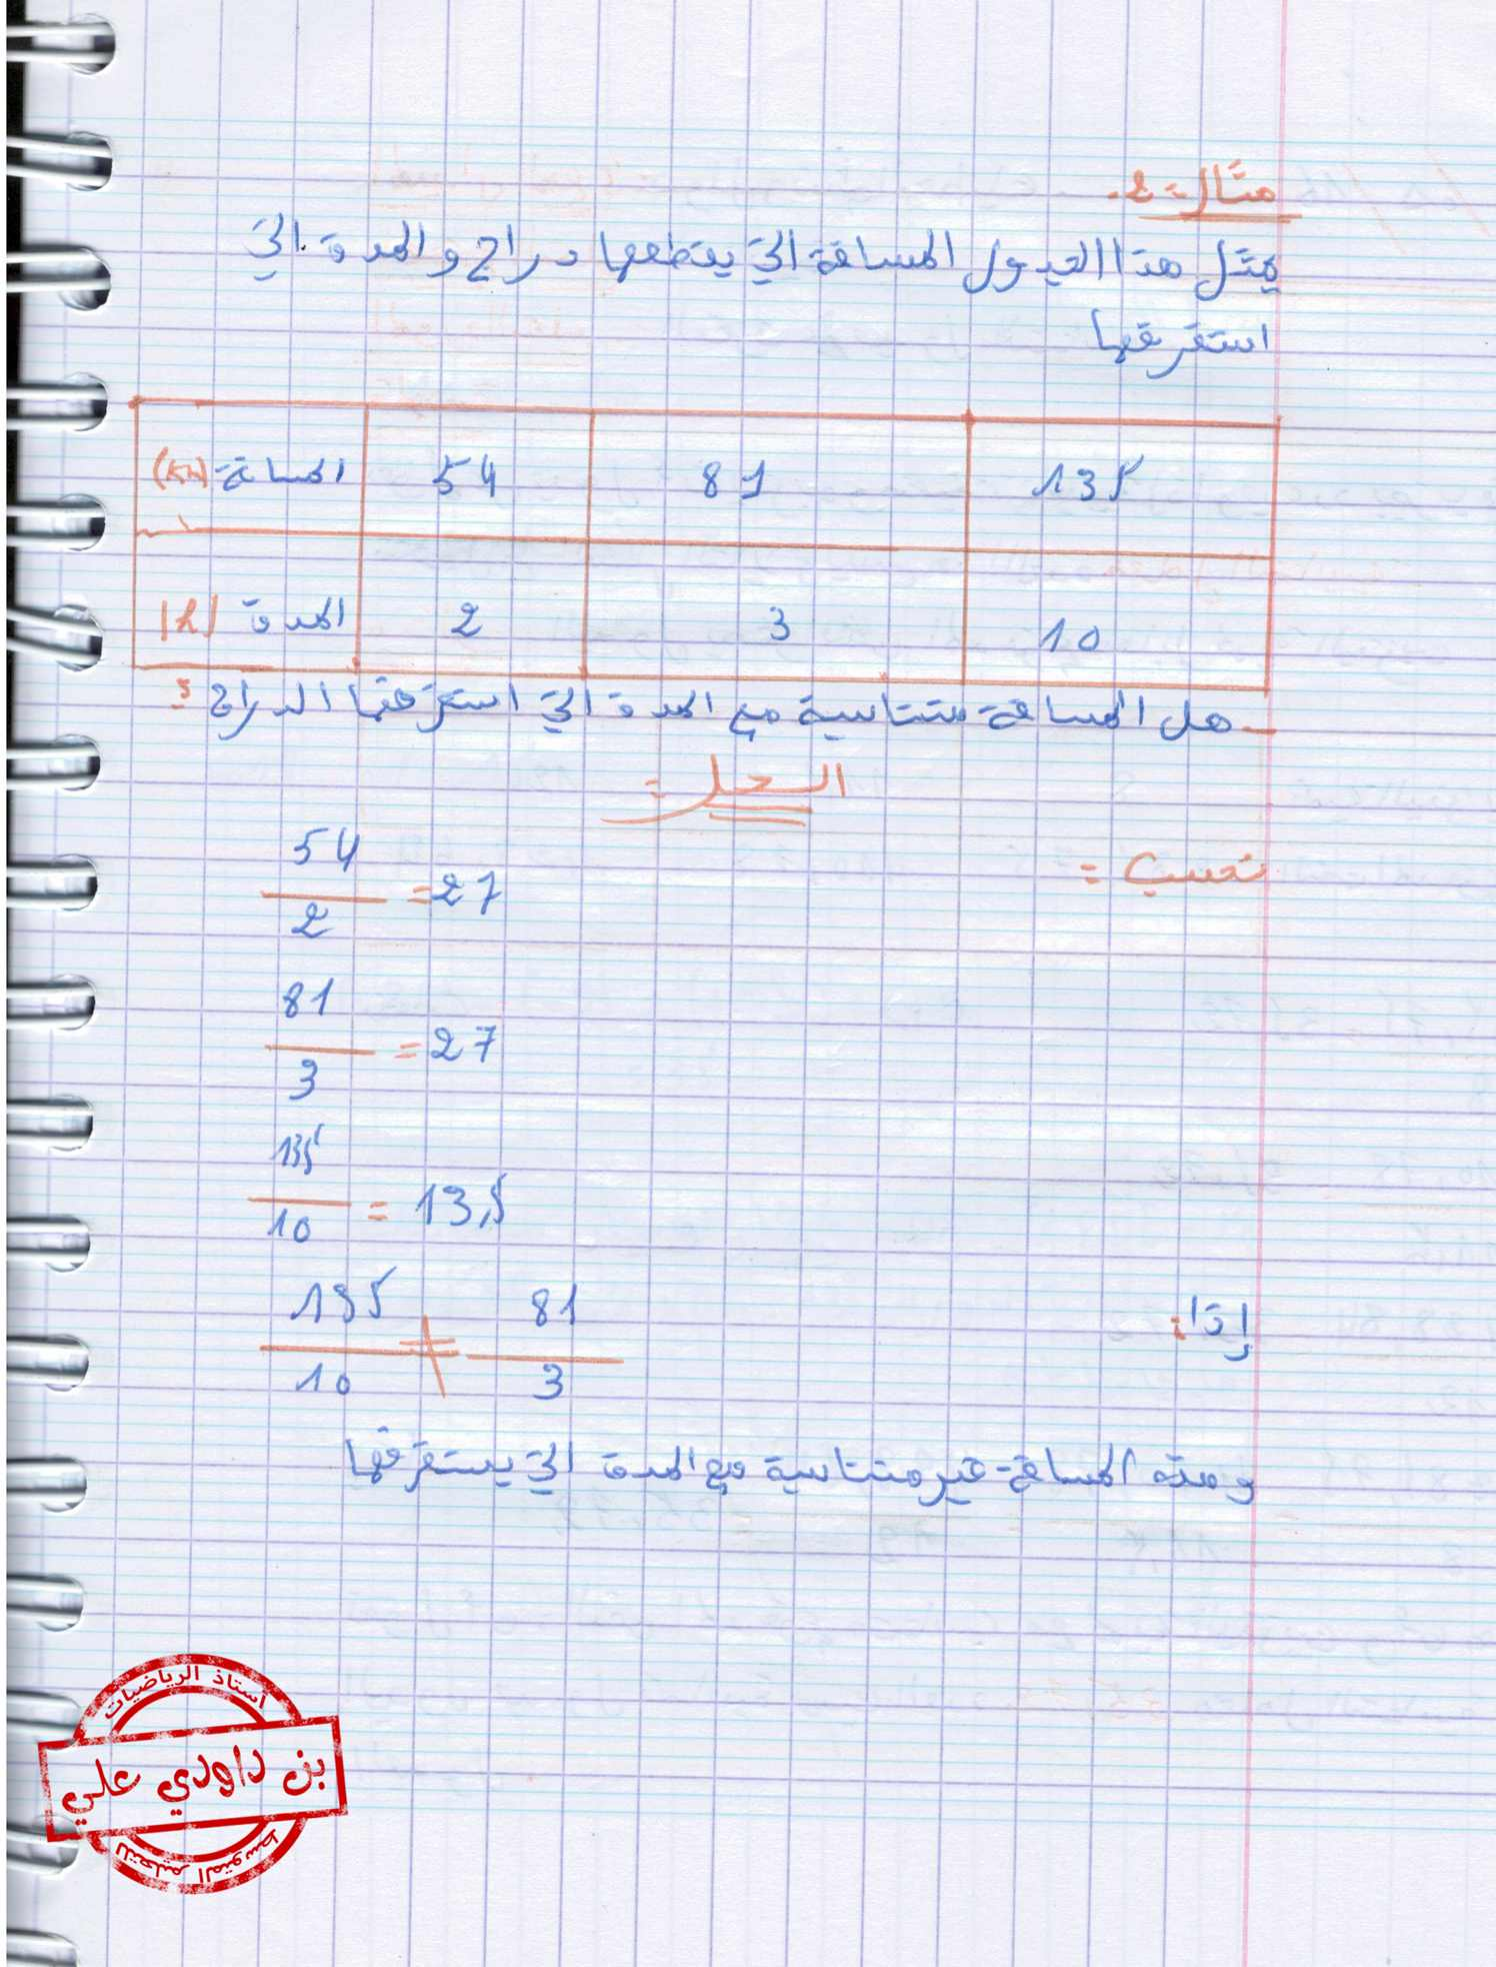 مثال 2-
يمثل هذا الجدول المسافة التي يقطعها دراج و المدة التي
استغرقها
المسافة (km) 54 81 135
المدة (h) 2 3 10
- هل المسافة متناسبة مع المدة التي استغرقها الدراج ؟
الحل =
نحسب =
54/2 = 27
81/3 = 27
135/10 = 13,5
إذا: 135/10 ≠ 81/3
و منه المسافة غير متناسبة مع المدة التي يستغرقها
أستاذ الرياضيات
بن داودي علي
للتعليم المتوسط